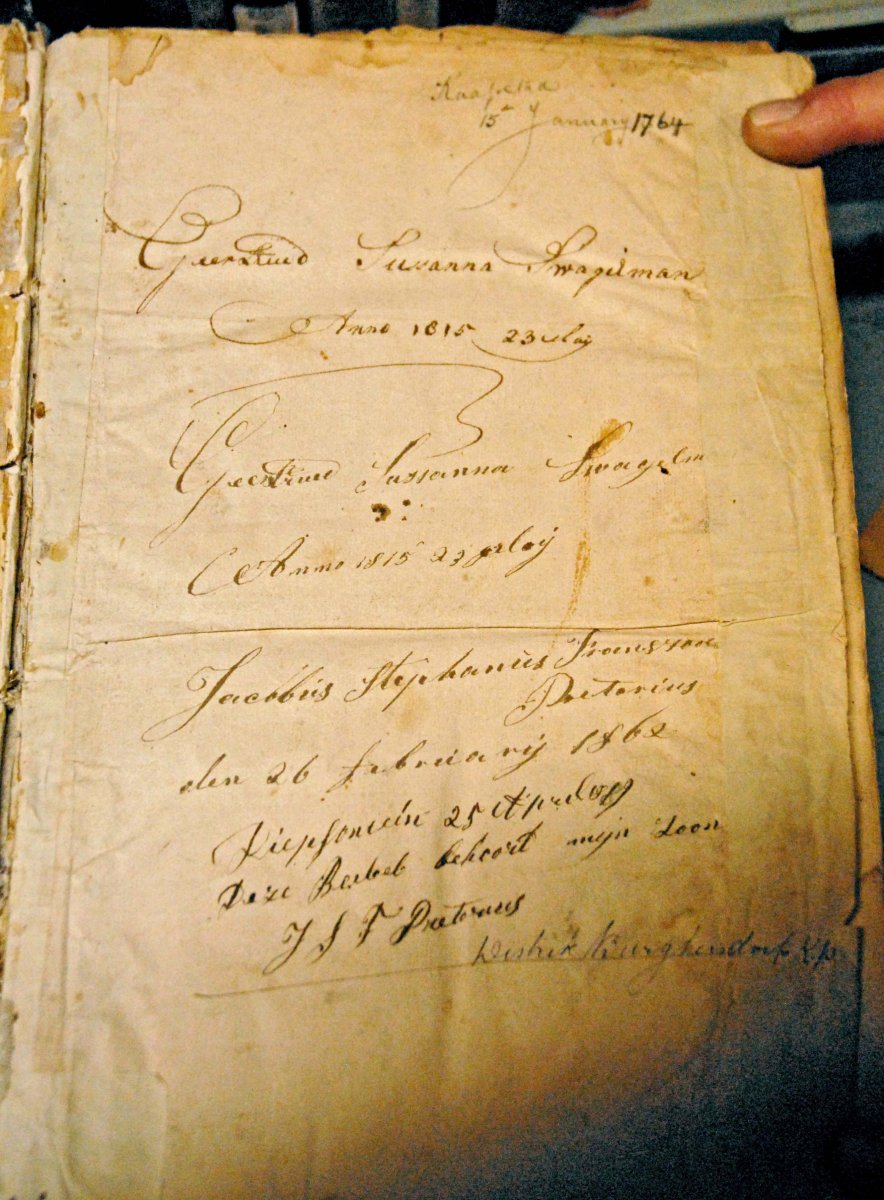 15 January 1764
Geertruid Susanna Swagerman
Anno 1815 23 Maij
Geertruid Sussanna Swagerm
Anno 1815 23 Maij
Jacobus Stephanus Franszoon
Pretorius
den 26 februarij 1862
25 April
Deze Beibel behoort mijn Zoon
J S F Pretorius
Distrik Burghersdorp K.P.